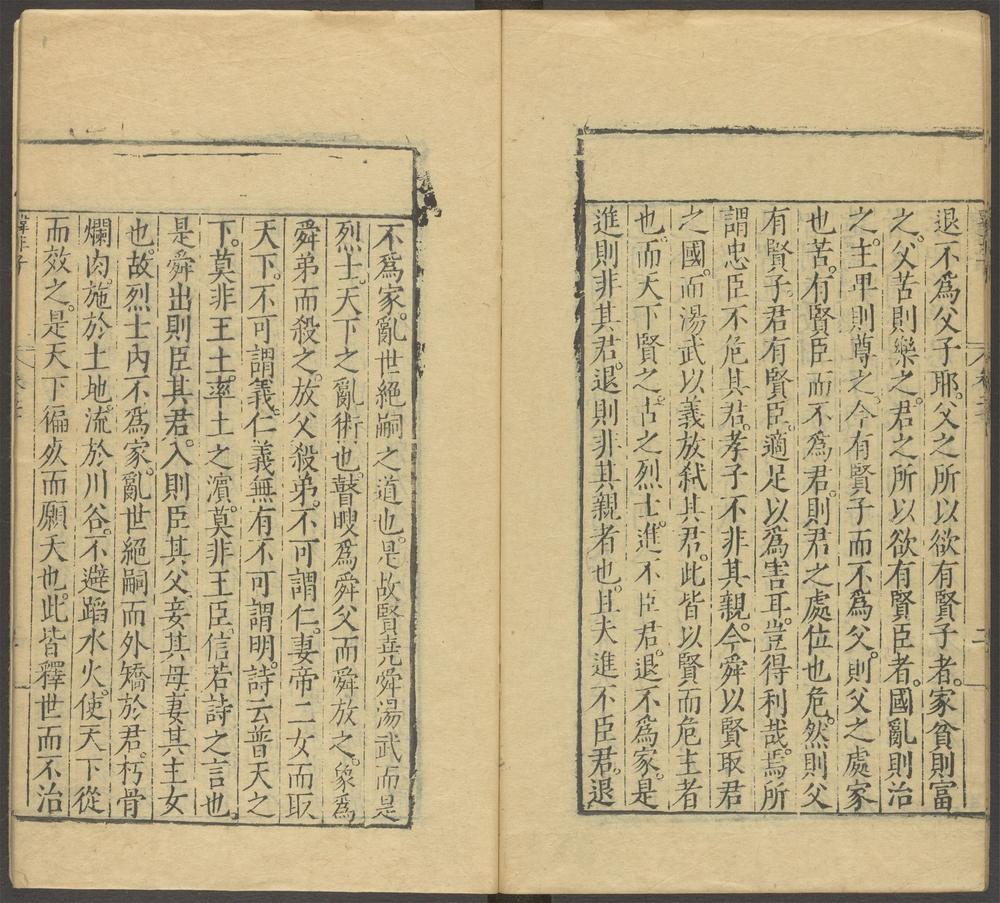 退不爲父子耶。父之所以欲有賢子者。家貧則富
之。父苦則樂之。君之所以欲有賢臣者。國亂則治
之。主卑則尊之。今有賢子而不爲父。則父之處家
也苦。有賢臣而不爲君。則君之處位也危。然則父
有賢子。君有賢臣。適足以爲害耳。豈得利哉。焉所
謂忠臣不危其君。孝子不非其親。今舜以賢取君
之國。而湯武以義放弒其君。此皆以賢而危主者
也。而天下賢之。古之烈士。進不臣君。退不爲家。是
進則非其君。退則非其親者也。且夫進不臣君。退
不爲家。亂世絕嗣之道也。是故賢堯舜湯武而是
烈士。天下之亂術也。瞽瞍爲舜父而舜放之。象爲
舜弟而殺之。放父殺弟。不可謂仁。妻帝二女而取
天下。不可謂義。仁義無有。不可謂明。詩云普天之
下。莫非王土。率土之濵。莫非王臣。信若詩之言也。
是舜出則臣其君。入則臣其父。妾其母。妻其主女
也。故烈士內不爲家。亂世絕嗣。而外矯於君。朽骨
爛肉。施於土地。流於川谷。不避蹈水火。使天下從
而效之。是天下徧死而願夭也。此皆釋世而不治
韓非子